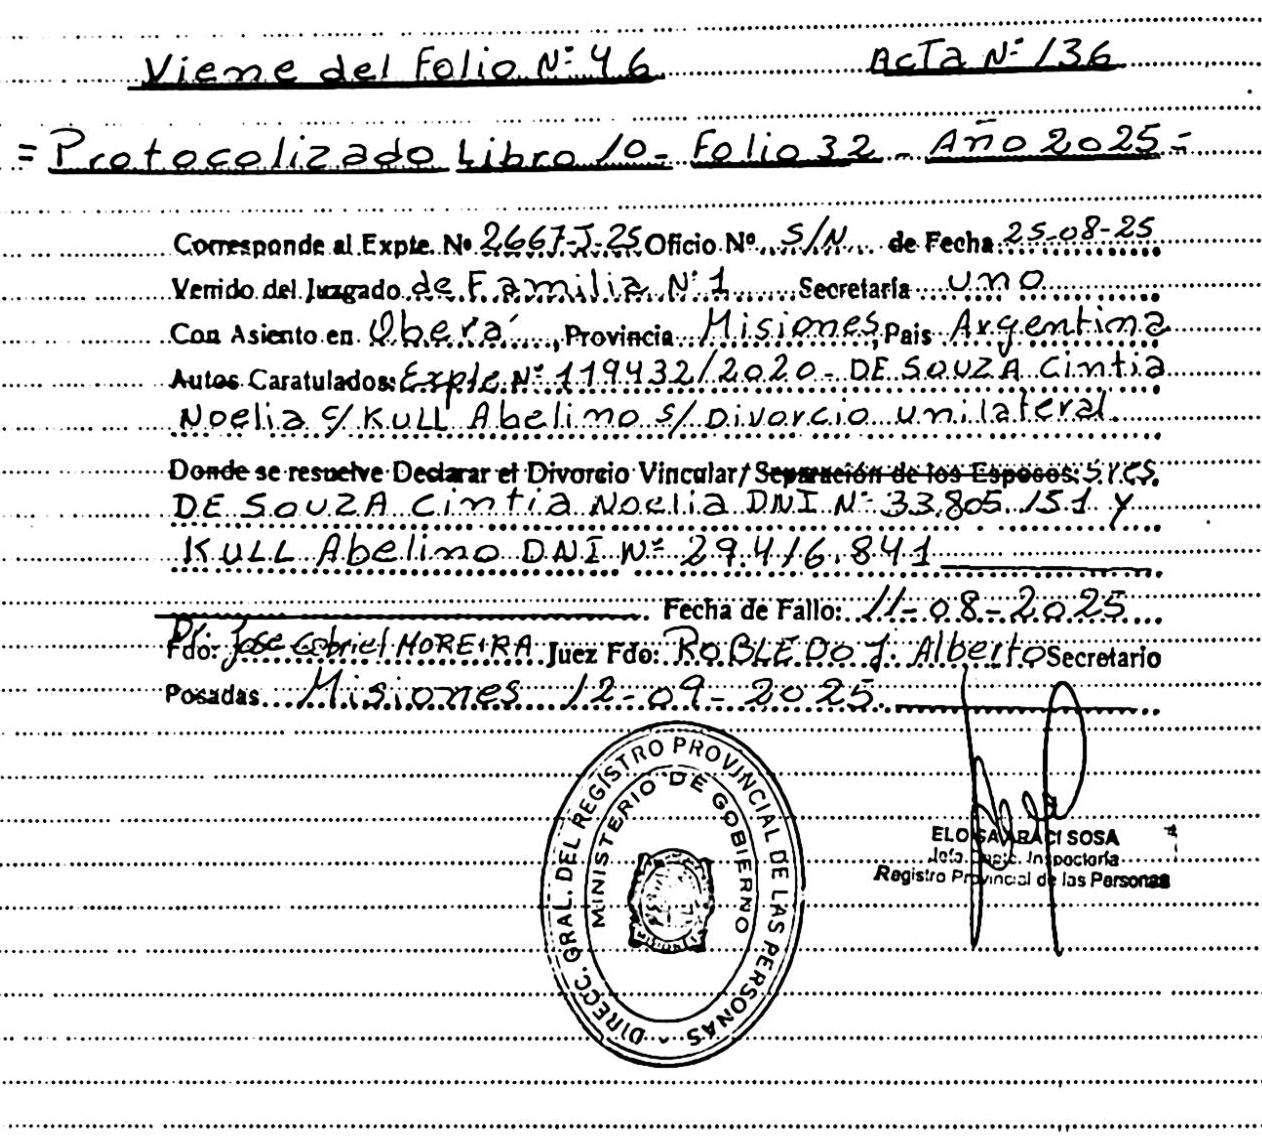 Viene del Folio Nº 46 Acta Nº 136
= Protocolizado Libro 10 - Folio 32 - Año 2025 =
Corresponde al Expte. Nº 2667-J-25 Oficio Nº S/N de Fecha 25-08-25
Venido del Juzgado de Familia Nº 1 Secretaría uno
Con Asiento en Oberá, Provincia Misiones, Pais Argentina
Autos Caratulados: Expte Nº 119432/2020 - DE SOUZA Cintia
Noelia c/ KULL Abelino s/ Divorcio unilateral.
Donde se resuelve Declarar el Divorcio Vincular/ Separación de los Esposos: Sres.
DE SOUZA Cintia Noelia DNI Nº 33.805.151 y
KULL Abelino DNI Nº 29.416.841
Fecha de Fallo: 11-08-2025
Fdo: Dr. Jose Gabriel MOREIRA Juez Fdo: ROBLEDO J. Alberto Secretario
Posadas Misiones 12-09-2025.
DIRECC. GRAL. DEL REGISTRO PROVINCIAL DE LAS PERSONAS
MINISTERIO DE GOBIERNO
MISIONES
ELOISA ARACI SOSA
Jefa Dpto. Inspectoría
Registro Provincial de las Personas